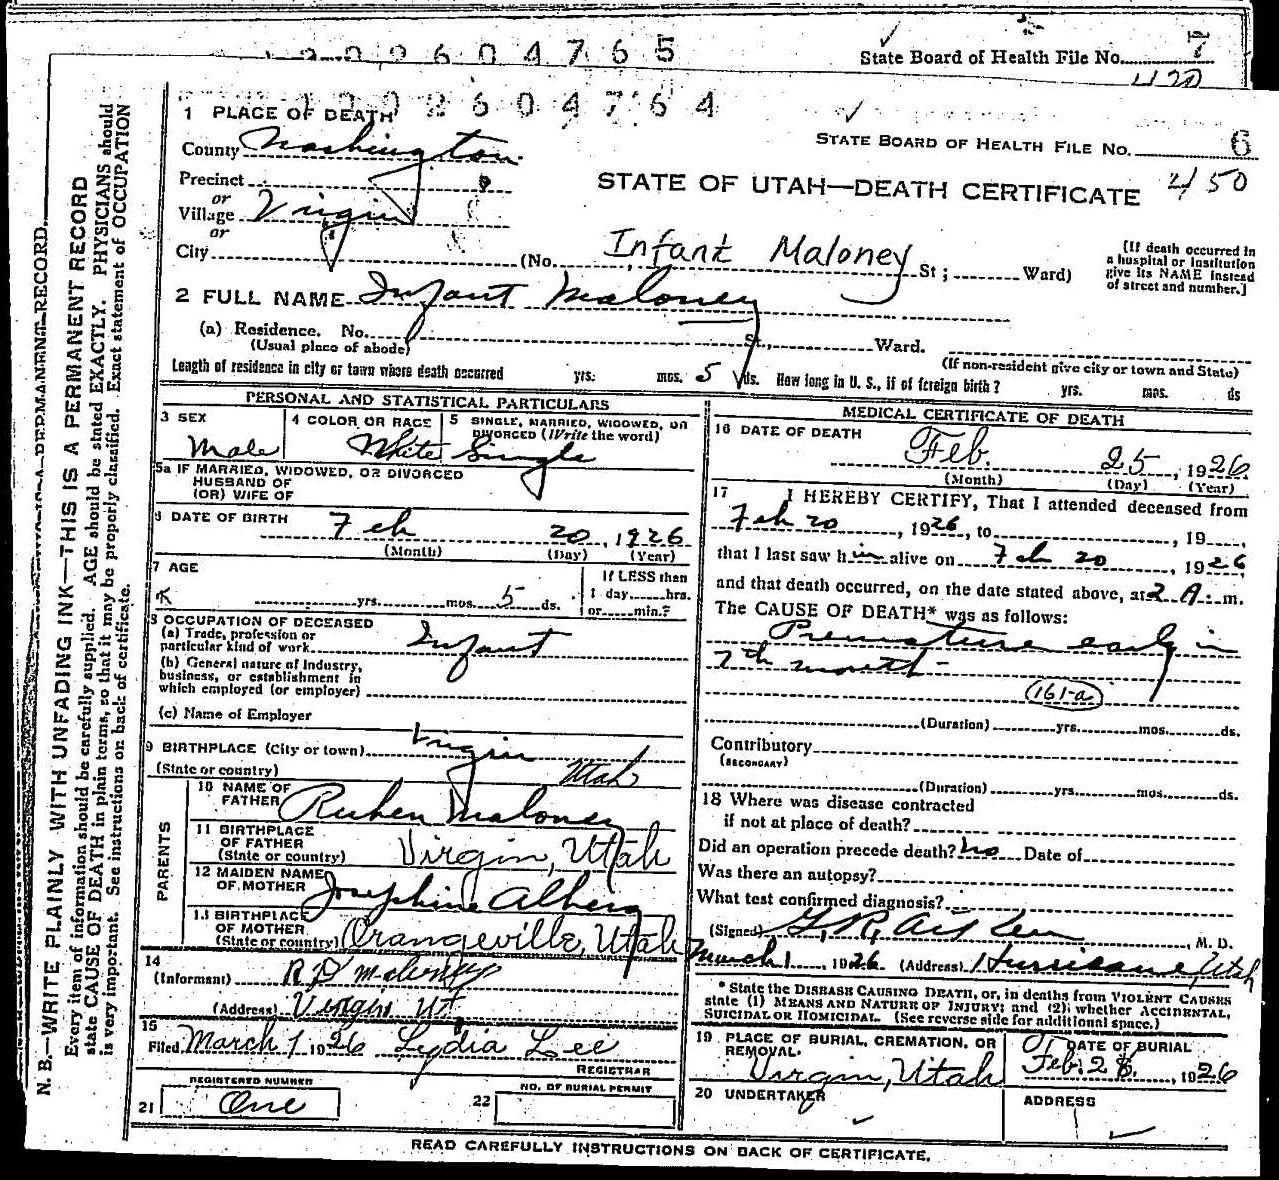 1 9 2 6 0 4 7 6 5
State Board of Health File No. 7
420
1 9 2 6 0 4 7 6 4
1 PLACE OF DEATH
STATE BOARD OF HEALTH FILE NO. 6
County Washington
Precinct
or
STATE OF UTAH—DEATH CERTIFICATE 450
Village Virgin
or
City (No. Infant Maloney St; Ward)
[If death occurred in
a hospital or institution
give its NAME instead
of street and number.]
2 FULL NAME Infant Maloney
(a) Residence. No. St., Ward.
(Usual place of abode) (If non-resident give city or town and State)
Length of residence in city or town where death occurred yrs. mos. 5 ds. How long in U. S., if of foreign birth? yrs. mos. ds
PERSONAL AND STATISTICAL PARTICULARS
3 SEX Male
4 COLOR OR RACE White
5 SINGLE, MARRIED, WIDOWED, OR
DIVORCED (Write the word) Single
5a IF MARRIED, WIDOWED, OR DIVORCED
HUSBAND OF
(OR) WIFE OF
6 DATE OF BIRTH Feb 20, 1926
(Month) (Day) (Year)
7 AGE yrs. mos. 5 ds.
If LESS than
1 day, hrs.
or min.?
8 OCCUPATION OF DECEASED
(a) Trade, profession or
particular kind of work Infant
(b) General nature of Industry,
business, or establishment in
which employed (or employer)
(c) Name of Employer
9 BIRTHPLACE (City or town) Virgin
(State or country) Utah
PARENTS
10 NAME OF
FATHER Ruben Maloney
11 BIRTHPLACE
OF FATHER
(State or country) Virgin, Utah
12 MAIDEN NAME
OF MOTHER Josephine Alberg
13 BIRTHPLACE
OF MOTHER
(State or country) Orangeville, Utah
14
(Informant) R D Maloney
(Address) Virgin Ut.
15
Filed March 1 1926 Lydia Lee
REGISTRAR
REGISTERED NUMBER
21 One
NO. OF BURIAL PERMIT
22
MEDICAL CERTIFICATE OF DEATH
16 DATE OF DEATH
Feb. 25, 1926
(Month) (Day) (Year)
17 I HEREBY CERTIFY, That I attended deceased from
Feb 20, 1926, to, 19
that I last saw him alive on Feb 20, 1926,
and that death occurred, on the date stated above, at 2 A. m.
The CAUSE OF DEATH* was as follows:
Premature early in
7th month-
161-a
(Duration) yrs. mos. ds.
Contributory
(SECONDARY)
(Duration) yrs. mos. ds.
18 Where was disease contracted
if not at place of death?
Did an operation precede death? no Date of
Was there an autopsy?
What test confirmed diagnosis?
(Signed) G. R. Aitken, M. D.
March 1, 1926 (Address) Hurricane, Utah
* State the DISEASE CAUSING DEATH, or, in deaths from VIOLENT CAUSES
state (1) MEANS AND NATURE OF INJURY; and (2); whether ACCIDENTAL,
SUICIDAL OR HOMICIDAL. (See reverse side for additional space.)
19 PLACE OF BURIAL, CREMATION, OR
REMOVAL.
Virgin, Utah
DATE OF BURIAL
Feb. 26, 1926
20 UNDERTAKER
ADDRESS
READ CAREFULLY INSTRUCTIONS ON BACK OF CERTIFICATE.
N. B.—WRITE PLAINLY WITH UNFADING INK—THIS IS A PERMANENT RECORD
Every item of information should be carefully supplied. AGE should be stated EXACTLY. PHYSICIANS should
state CAUSE OF DEATH in plain terms, so that it may be properly classified. Exact statement of OCCUPATION
is very important. See instructions on back of certificate.